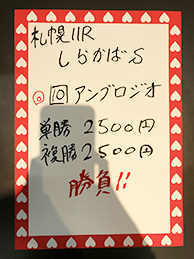 札幌11R
しらかばS
◎ 10 アンブロジオ
単勝 2500円
複勝 2500円
勝負!!